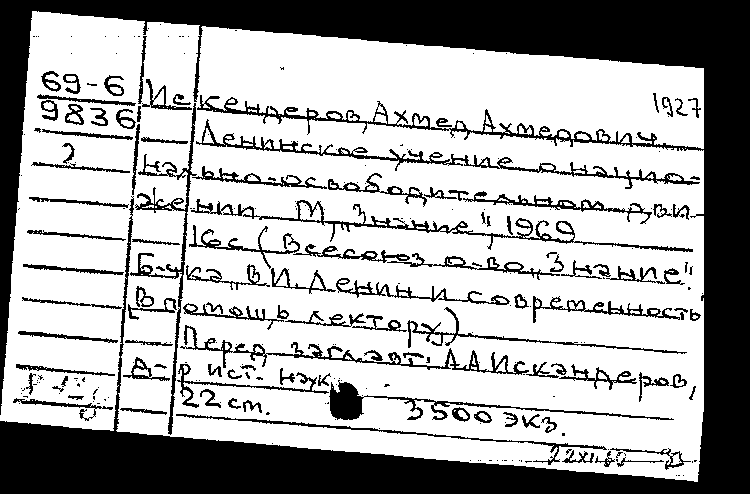 69-6
9836
2
1927
Искендеров, Ахмед Ахмедович.
Ленинское учение о нацио-
нально-освободительном дви-
жении. М., "Знание", 1969
16с. (Всесоюз. о-во "Знание".
Б-чка "В.И. Ленин и современность"
В помощь лектору).
Перед загл. авт.: А.А. Искандеров,
д-р ист. наук.
22 cm. 3500 экз.